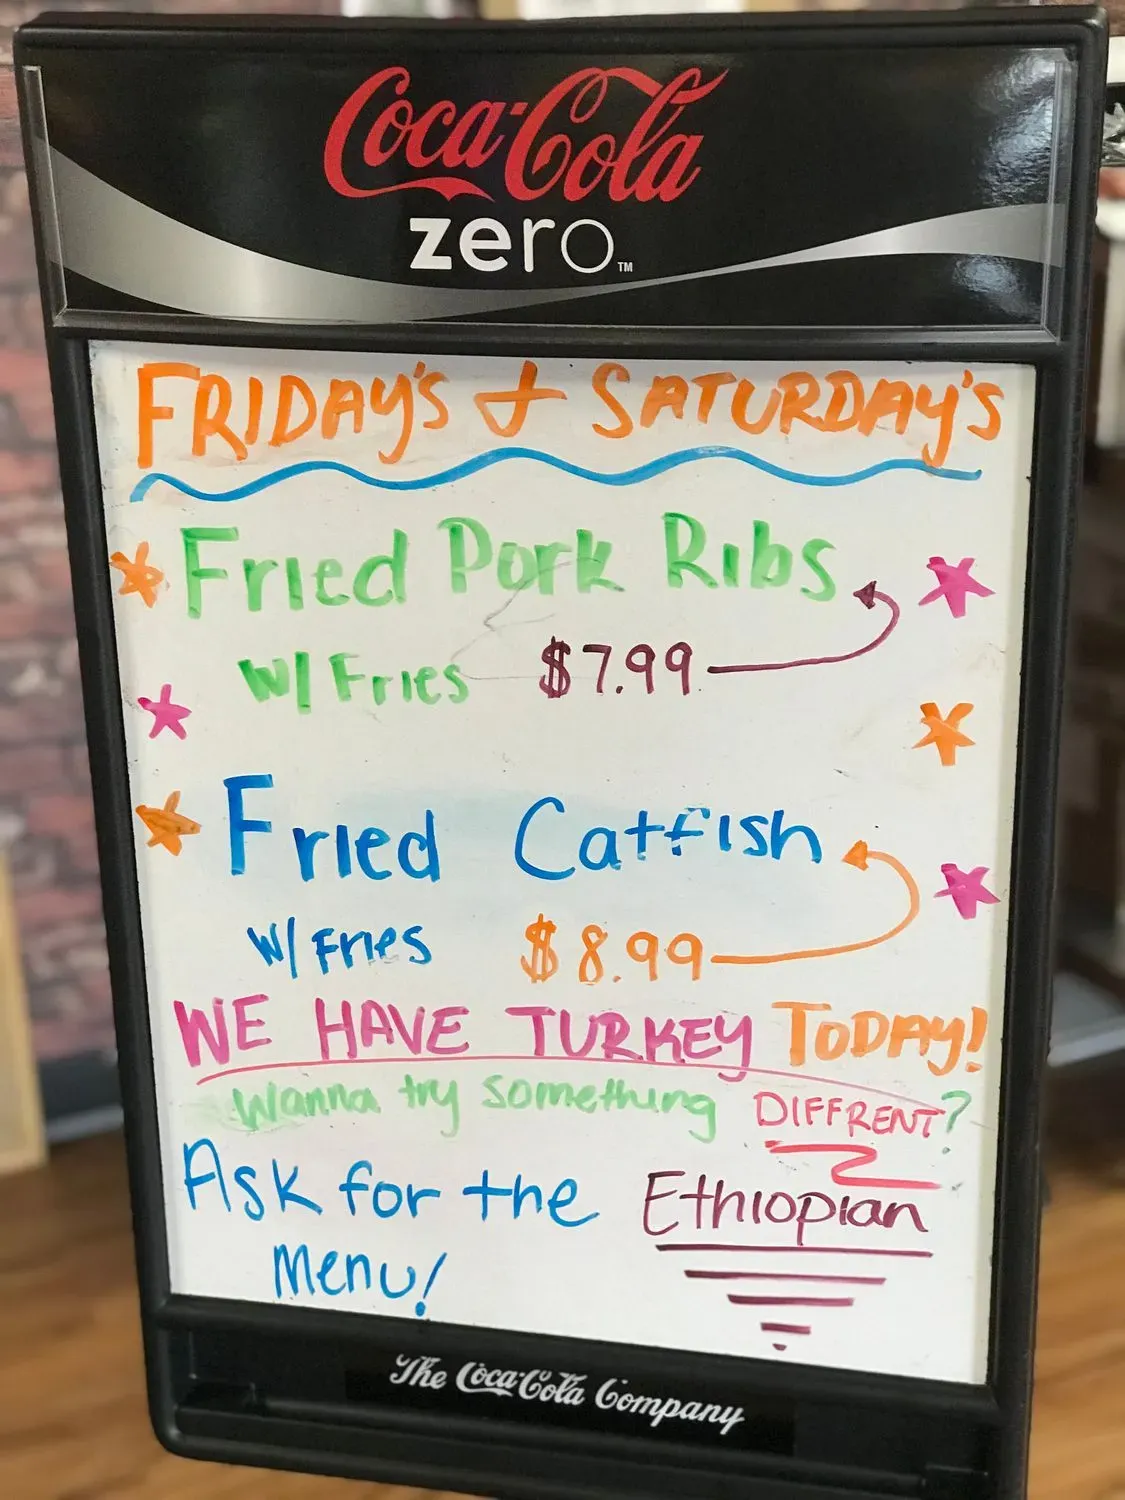 Coca-Cola
zero™
FRIDAY'S + SATURDAY'S
Fried Pork Ribs
W/ Fries $7.99
Fried Catfish
W/ Fries $8.99
WE HAVE TURKEY TODAY!
Wanna try something DIFFRENT?
Ask for the Ethiopian
Menu!
The Coca-Cola Company